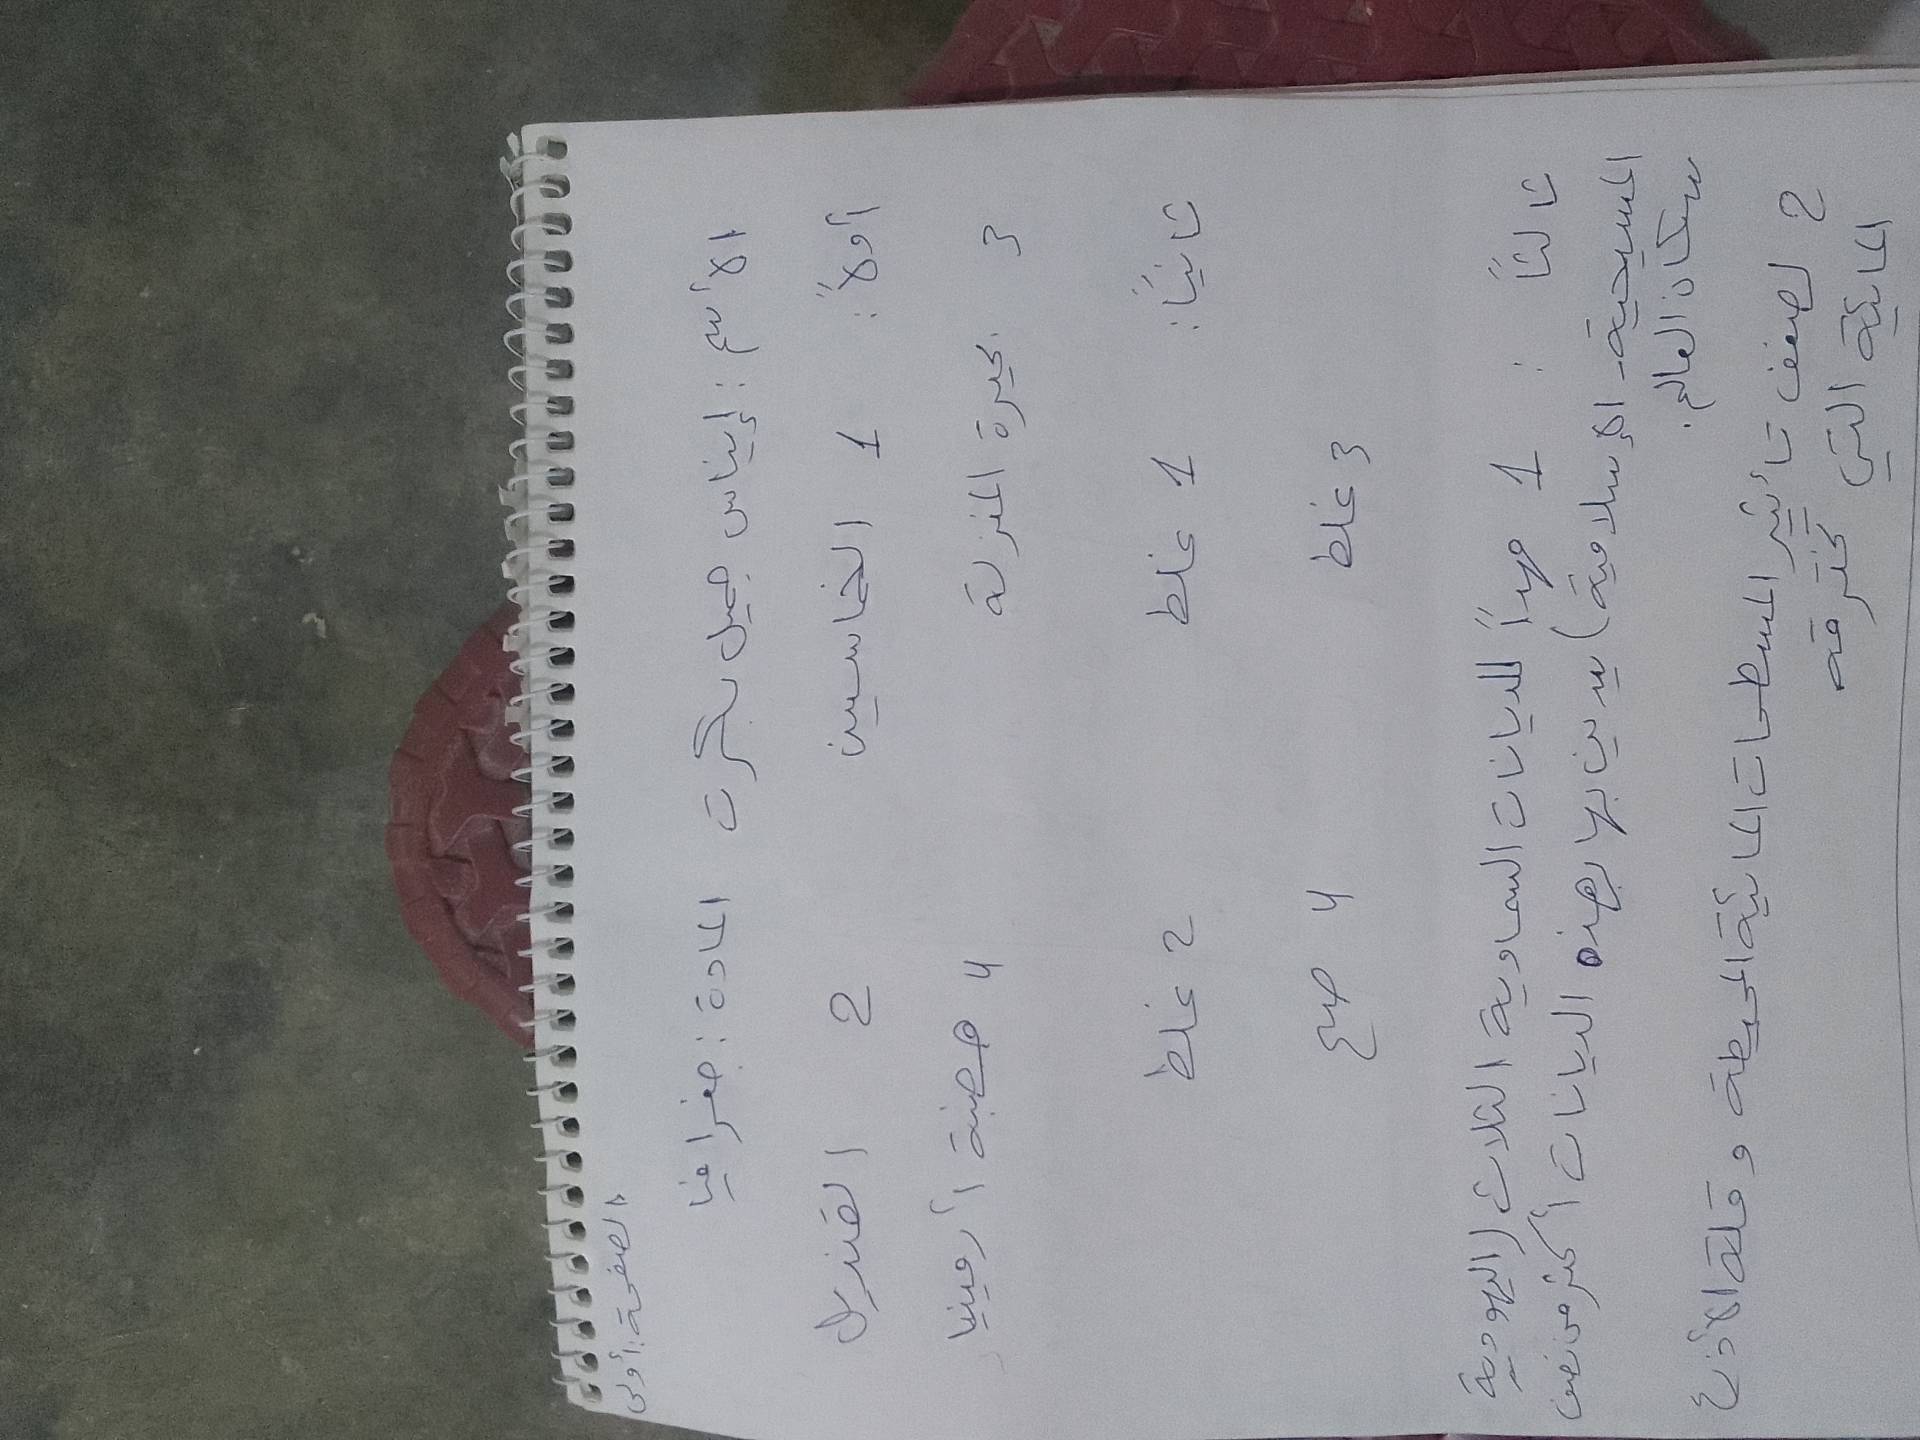 الصفحة: أولى
الأسم: إيناس جميل بكرت المادة: جغرافيا
أولاً: 1 الخماسين 2 القنديل
3 بحيرة المنزلة 4 هضبة أرمينيا
ثانياً: 1 غلط 2 غلط
3 غلط 4 صح
ثالثاً: 1 مهداً للديانات السماوية الثلاث (اليهودية
المسيحية - الإسلامية) يدين بها بهذه الديانات أكثر من نصف
سكان العالم.
2 لضعف تأثير المسطحات المائية المحيطة وقلة الأذرع
المائية التي تخترقه